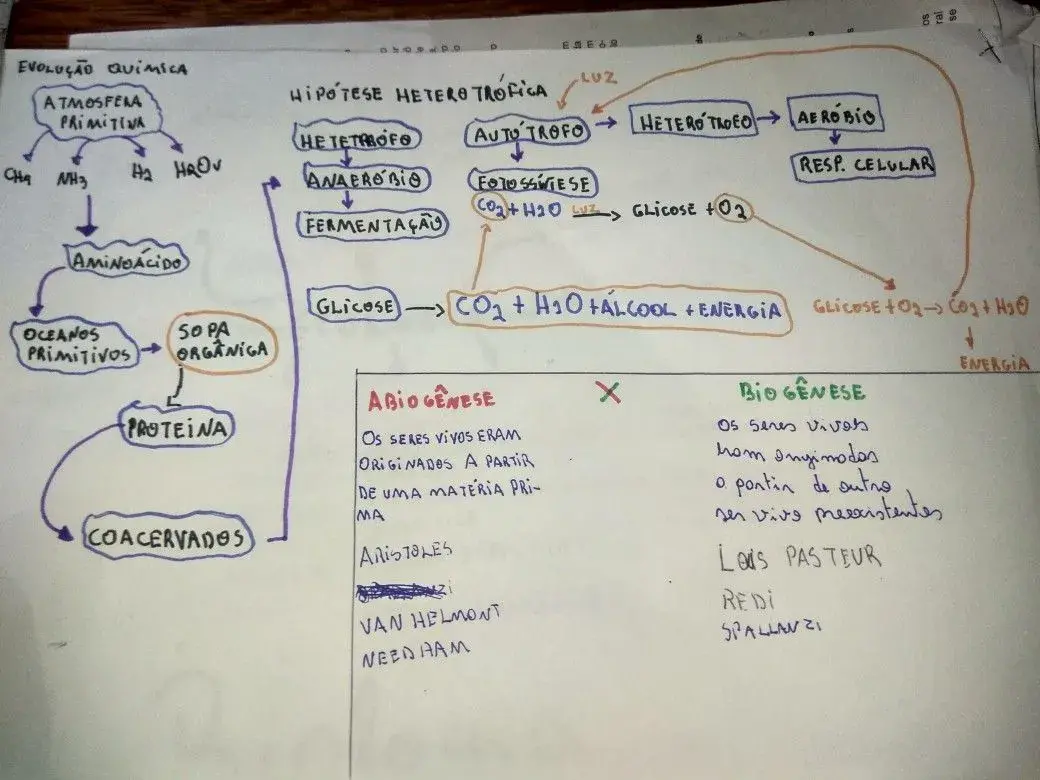 EVOLUÇÃO QUÍMICA
ATMOSFERA
PRIMITIVA
CH4 NH3 H2 H2Ov
AMINOÁCIDO
OCEANOS
PRIMITIVOS
SOPA
ORGÂNICA
PROTEINA
COACERVADOS
HIPÓTESE HETEROTRÓFICA
HETETRÓFO
ANAERÓBIO
FERMENTAÇÃO
LUZ
AUTÓTROFO
HETERÓTROFO
AERÓBIO
RESP. CELULAR
FOTOSSÍNTESE
CO2 + H2O LUZ GLICOSE + O2
GLICOSE
CO2 + H2O + ÁLCOOL + ENERGIA
GLICOSE + O2 → CO2 + H2O
ENERGIA
ABIOGÊNESE X BIOGÊNESE
OS SERES VIVOS ERAM
ORIGINADOS A PARTIR
DE UMA MATÉRIA PRI-
MA
ARISTOLES
VAN HELMONT
NEEDHAM
Os seres vivos
a partir de outro
ser vivo preexistentes
PASTEUR
REDI
SPALLANZI
os
ral
se